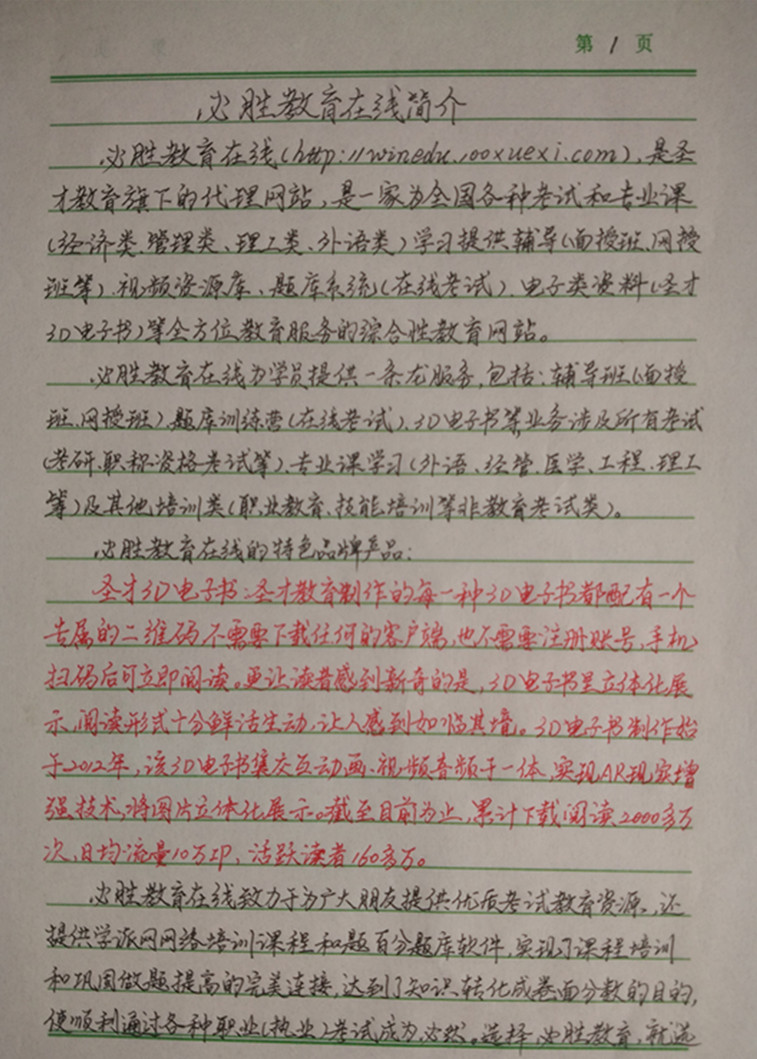 第 1 页
必胜教育在线简介
必胜教育在线(http://winedu.100xuexi.com),是圣
才教育旗下的代理网站,是一家为全国各种考试和专业课
(经济类、管理类、理工类、外语类)学习提供辅导(面授班、网授
班等)、视频资源库、题库系统(在线考试)、电子类资料(圣才
3D电子书)等全方位教育服务的综合性教育网站。
必胜教育在线为学员提供一条龙服务,包括:辅导班(面授
班、网授班)、题库训练营(在线考试)、3D电子书等,业务涉及所有考试
(考研、职称资格考试等)、专业课学习(外语、经管、医学、工程、理工
等)及其他培训类(职业教育、技能培训等非教育考试类)。
必胜教育在线的特色品牌产品:
圣才3D电子书:圣才教育制作的每一种3D电子书都配有一个
专属的二维码,不需要下载任何的客户端,也不需要注册账号,手机
扫码后可立即阅读。更让读者感到新奇的是,3D电子书呈立体化展
示,阅读形式十分鲜活生动,让人感到如临其境。3D电子书制作始
于2012年,该3D电子书集交互动画、视频音频于一体,实现AR现实增
强技术,将图片立体化展示。截至目前为止,累计下载阅读2000多万
次,日均流量10万IP,活跃读者160多万。
必胜教育在线致力于为广大朋友提供优质考试教育资源,还
提供学派网网络培训课程和题百分题库软件,实现了课程培训
和巩固做题提高的完美连接,达到了知识转化成卷面分数的目的,
使顺利通过各种职业(执业)考试成为必然。选择必胜教育,就选